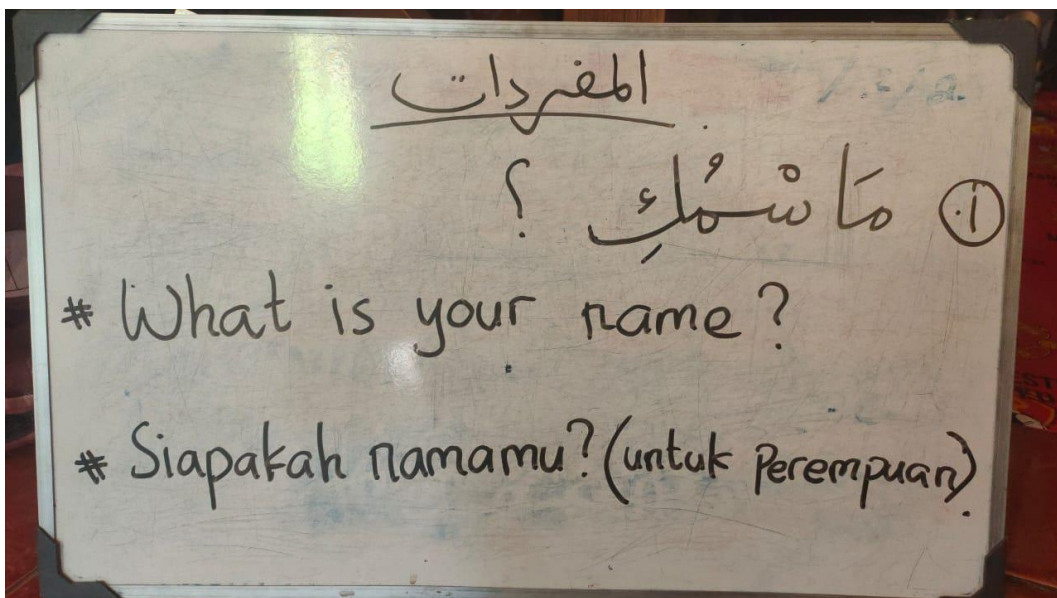 المفردات
١. مَا سْمُكِ ؟
# What is your name?
# Siapakah namamu? (untuk Perempuan).